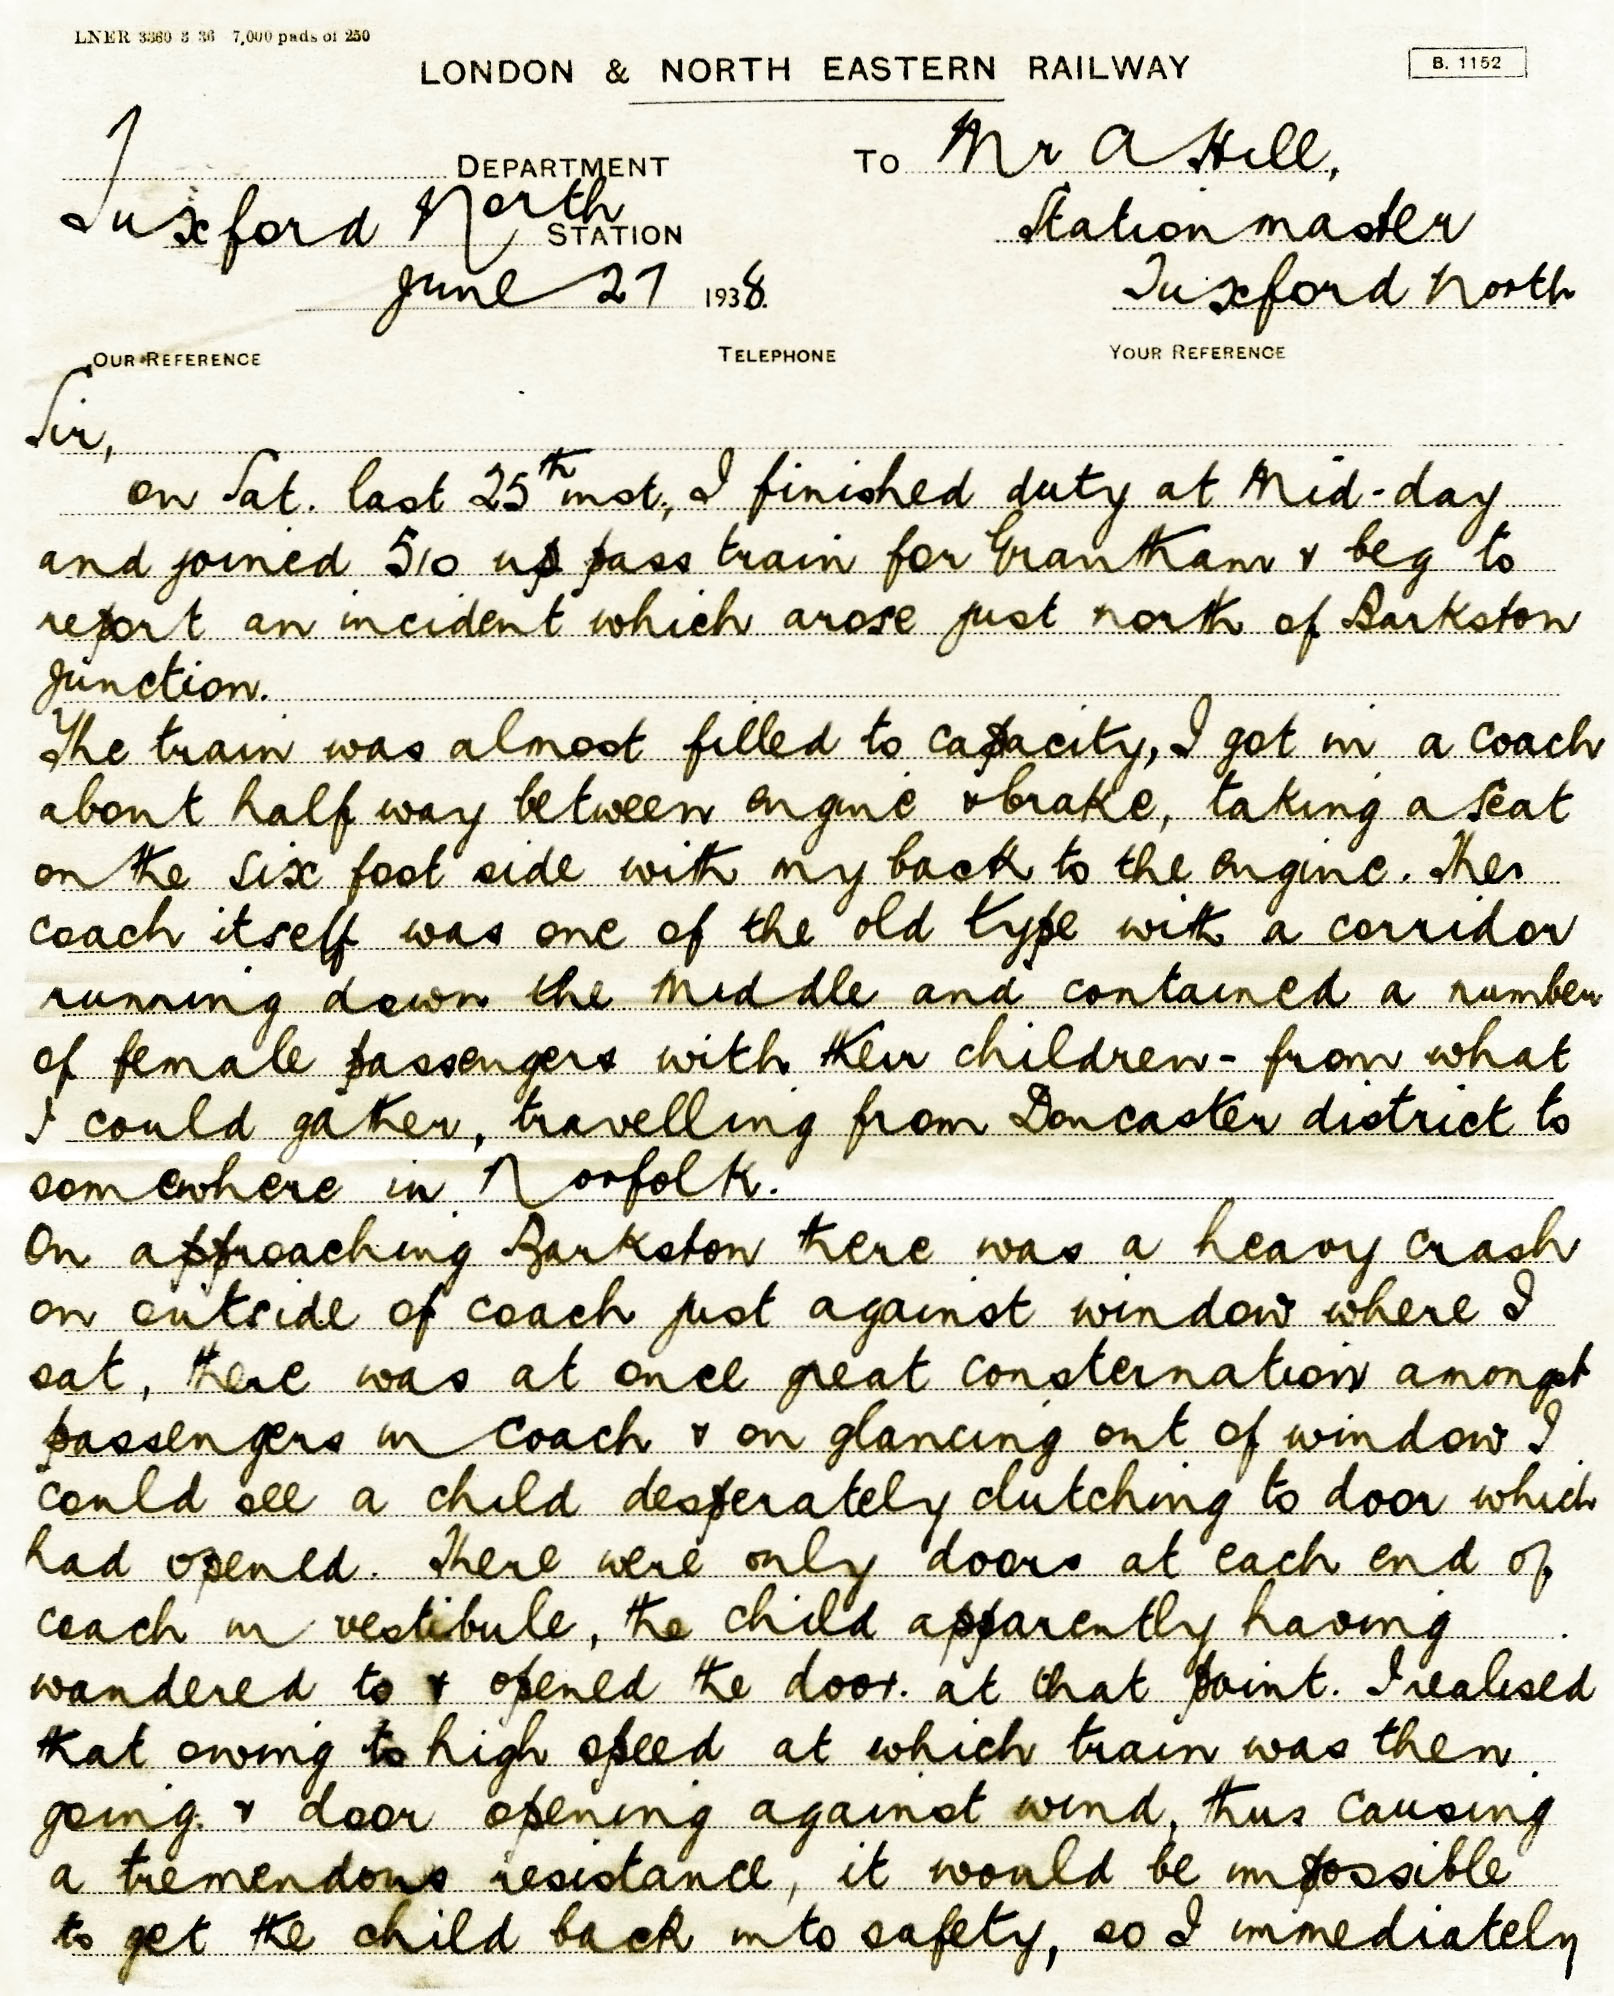 LNER 3360 3 36 7,000 pads of 250
LONDON & NORTH EASTERN RAILWAY
B. 1152
DEPARTMENT
TO Mr A Hill,
Tuxford North STATION
Stationmaster
June 27 1938.
Tuxford North
OUR REFERENCE TELEPHONE YOUR REFERENCE
Sir,
on Sat. last 25th inst., I finished duty at Mid-day
and joined 510 up pass train for Grantham & beg to
report an incident which arose just north of Barkston
Junction.
The train was almost filled to capacity, I got in a coach
about half way between engine & brake, taking a seat
on the six foot side with my back to the engine. The
coach itself was one of the old type with a corridor
running down the middle and contained a number
of female passengers with their children - from what
I could gather, travelling from Doncaster district to
somewhere in Norfolk.
On approaching Barkston there was a heavy crash
on outside of coach just against window where I
sat, there was at once great consternation amongst
passengers in coach & on glancing out of window I
could see a child desperately clutching to door which
had opened. There were only doors at each end of
coach in vestibule, the child apparently having
wandered to & opened the door. at that point. I realised
that owing to high speed at which train was then
going. & door opening against wind, thus causing
a tremendous resistance, it would be impossible
to get the child back into safety, so I immediately